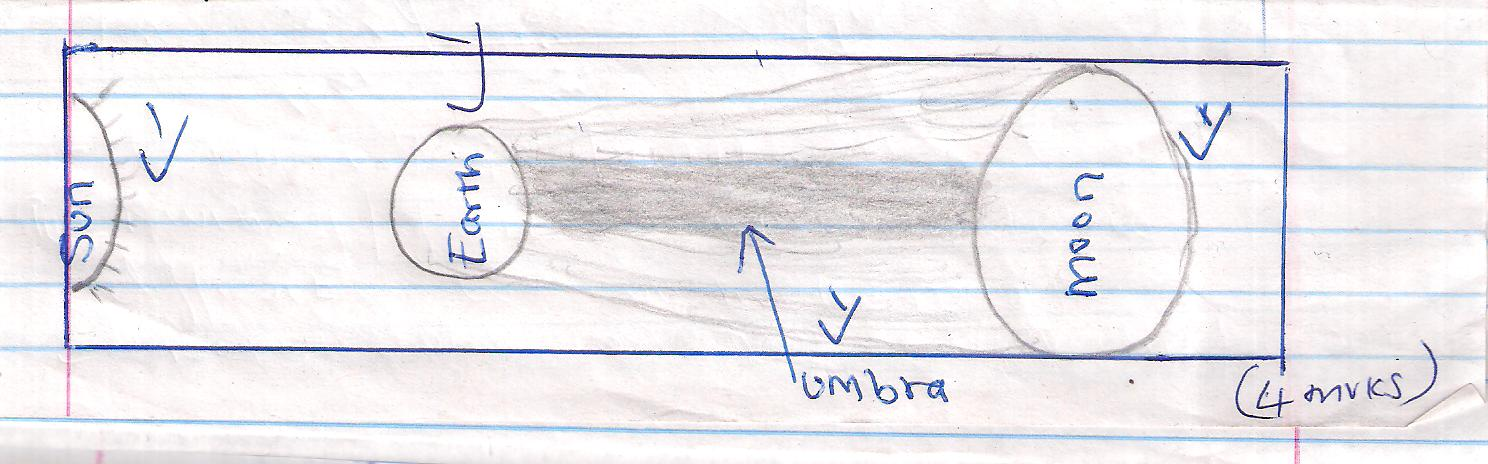 Sun
Earth
Moon
umbra
(4 mrks)